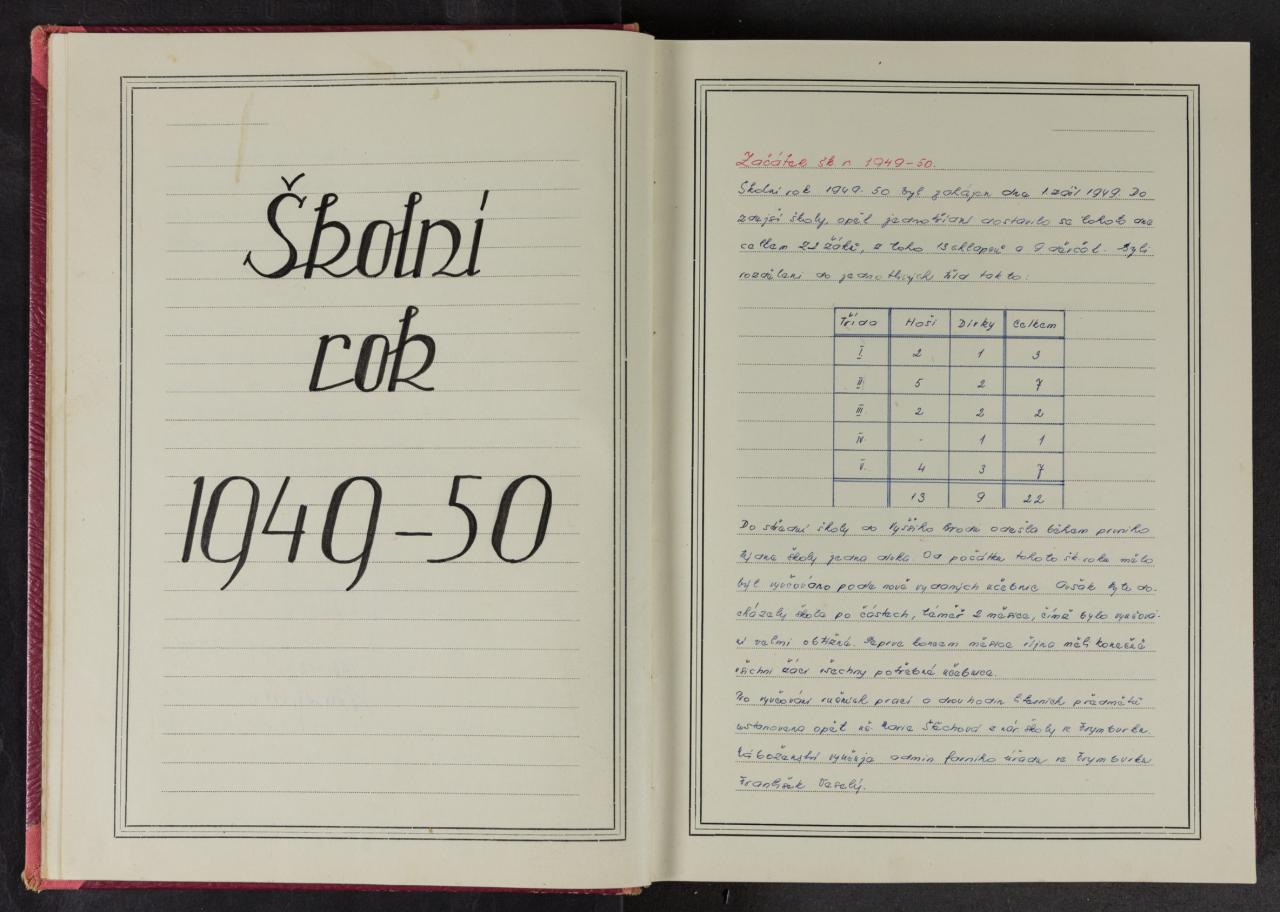 Školní
rok
1949-50
Začátek šk. r. 1949-50.
Školní rok 1949-50 byl zahájen dne 1. září 1949. Do
zdejší školy, opět jednotřídní dostavilo se tohoto dne
celkem 22 žáků, z toho 13 chlapců a 9 děvčat. Byli
rozděleni do jednotlivých tříd takto:
Třída Hoši Dívky Celkem
I. 2 1 3
II. 5 2 7
III. 2 2 2
IV. - 1 1
V. 4 3 7
13 9 22
Do střední školy do Vyššího Brodu odešla během prvního
týdne školy jedna dívka. Od počátku tohoto šk. roku mělo
být vyučováno podle nově vydaných učebnic. Avšak tyto do-
cházely škole po částech, téměř 2 měsíce, čímž bylo vyučová-
ní velmi obtížné. Teprve koncem měsíce října měli konečně
všichni žáci všechny potřebné učebnice.
Pro vyučování ručních prací a dvou hodin literních předmětů
ustanovena opět uč. Marie Štěchová z nár. školy ve Frymburku.
Náboženství vyučuje admin. farního úřadu ve Frymburku
František Veselý.